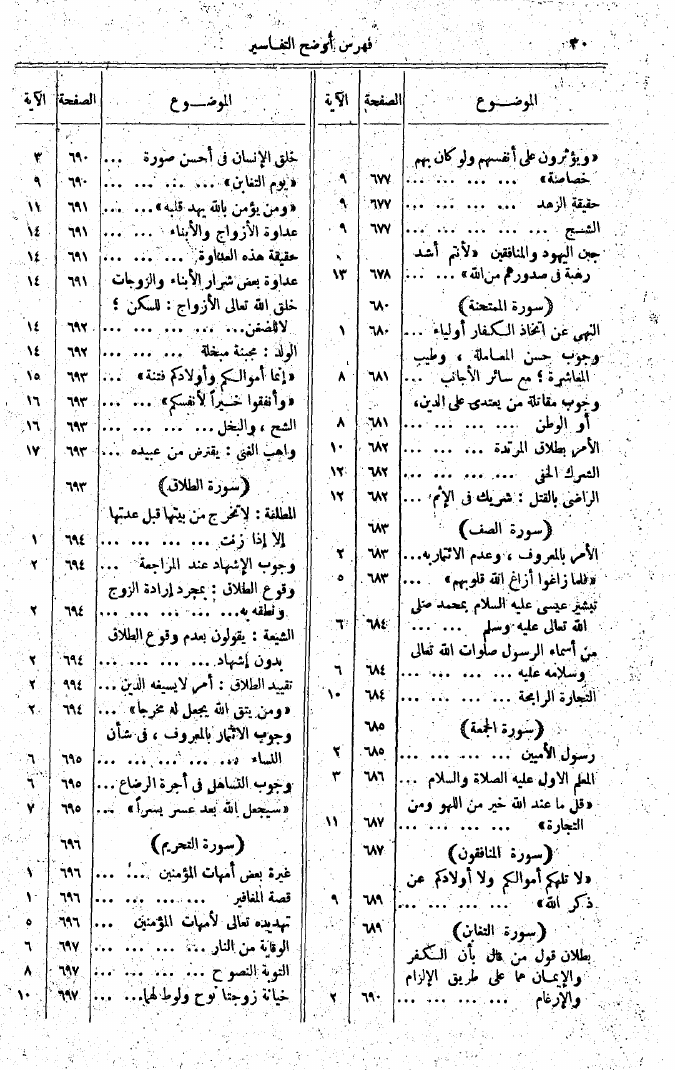 ٣٠
فهرس أوضح التفاسير
الموضـــوع الصفحة الآية
«ويؤثرون على أنفسهم ولو كان بهم
خصاصة» ... ... ... ... ٦٧٧ ٩
حقيقة الزهد ... ... ... ... ٦٧٧ ٩
الشـح ... ... ... ... ... ٦٧٧ ٩
جبن اليهود والمنافقين «لأنتم أشد
رهبة فى صدورهم من الله» ... ... ٦٧٨ ١٣
(سورة الممتحنة) ٦٨٠
النهى عن اتخاذ الكفار أولياء ... ٦٨٠ ١
وجوب حسن المعاملة ، وطيب
المعاشرة ؛ مع سائر الأجانب ... ٦٨١ ٨
وجوب مقاتلة من يعتدى على الدين،
أو الوطن ... ... ... ... ٦٨١ ٨
الأمر بطلاق المرتدة ... ... ... ٦٨٢ ١٠
الشرك الخفى ... ... ... ... ٦٨٢ ١٢
الراضى بالقتل : شريك فى الإثم ... ٦٨٢ ١٢
(سورة الصف) ٦٨٣
الأمر بالمعروف ، وعدم الائتمار به... ٦٨٣ ٢
«فلما زاغوا أزاغ الله قلوبهم» ... ٦٨٣ ٥
تبشير عيسى عليه السلام بمحمد صلى
الله تعالى عليه وسلم ... ... ... ٦٨٤ ٦
من أسماء الرسول صلوات الله تعالى
وسلامه عليه ... ... ... ... ٦٨٤ ٦
التجارة الرابحة ... ... ... ... ٦٨٤ ١٠
(سورة الجمعة) ٦٨٥
رسول الأميين ... ... ... ... ٦٨٥ ٢
المعلم الاول عليه الصلاة والسلام ... ٦٨٦ ٣
«قل ما عند الله خير من اللهو ومن
التجارة» ... ... ... ... ٦٨٧ ١١
(سورة المنافقون) ٦٨٧
«لا تلهكم أموالكم ولا أولادكم عن
ذكر الله» ... ... ... ... ٦٨٩ ٩
(سورة التغابن) ٦٨٩
بطلان قول من قال بأن الكفر
والإيمان هما على طريق الإلزام
والإرغام ... ... ... ... ٦٩٠ ٢
الموضـــوع الصفحة الآية
خلق الإنسان فى أحسن صورة ... ٦٩٠ ٣
«يوم التغابن» ... ... ... ... ٦٩٠ ٩
«ومن يؤمن بالله يهد قلبه»... ... ٦٩١ ١١
عداوة الأزواج والأبناء ... ... ٦٩١ ١٤
حقيقة هذه العداوة ... ... ... ٦٩١ ١٤
عداوة بعض شرار الأبناء والزوجات ٦٩١ ١٤
خلق الله تعالى الأزواج : للسكن ؛
لا للضغن... ... ... ... ... ٦٩٢ ١٤
الولد : مجبنة مبخلة ... ... ... ٦٩٢ ١٤
«إنما أموالكم وأولادكم فتنة» ... ٦٩٣ ١٥
«وأنفقوا خيراً لأنفسكم» ... ... ٦٩٣ ١٦
الشح ، والبخل ... ... ... ... ٦٩٣ ١٦
واهب الغنى : يقترض من عبيده ... ٦٩٣ ١٧
(سورة الطلاق) ٦٩٣
المطلقة : لا تخرج من بيتها قبل عدتها
إلا إذا زنت ... ... ... ... ٦٩٤ ١
وجوب الإشهاد عند المراجعة ... ٦٩٤ ٢
وقوع الطلاق : بمجرد إرادة الزوج
ونطقه به... ... ... ... ... ٦٩٤ ٢
الشيعة : يقولون بعدم وقوع الطلاق
بدون إشهاد ... ... ... ... ٦٩٤ ٢
تقييد الطلاق : أمر لا يسيغه الدين ... ٩٩٤ ٢
«ومن يتق الله يجعل له مخرجا» ... ٦٩٤ ٢
وجوب الائتمار بالمعروف ، فى شأن
النساء ... ... ... ... ... ٦٩٥ ٦
وجوب التساهل فى أجرة الرضاع ... ٦٩٥ ٦
«سيجعل الله بعد عسر يسراً» ... ٦٩٥ ٧
(سورة التحريم) ٦٩٦
غيرة بعض أمهات المؤمنين ... ... ٦٩٦ ١
قصة المغافير ... ... ... ... ٦٩٦ ١
تهديده تعالى لأمهات المؤمنين ... ٦٩٦ ٥
الوقاية من النار ... ... ... ... ٦٩٧ ٦
التوبة النصوح ... ... ... ... ٦٩٧ ٨
خيانة زوجتا نوح ولوط لهما... ... ٦٩٧ ١٠